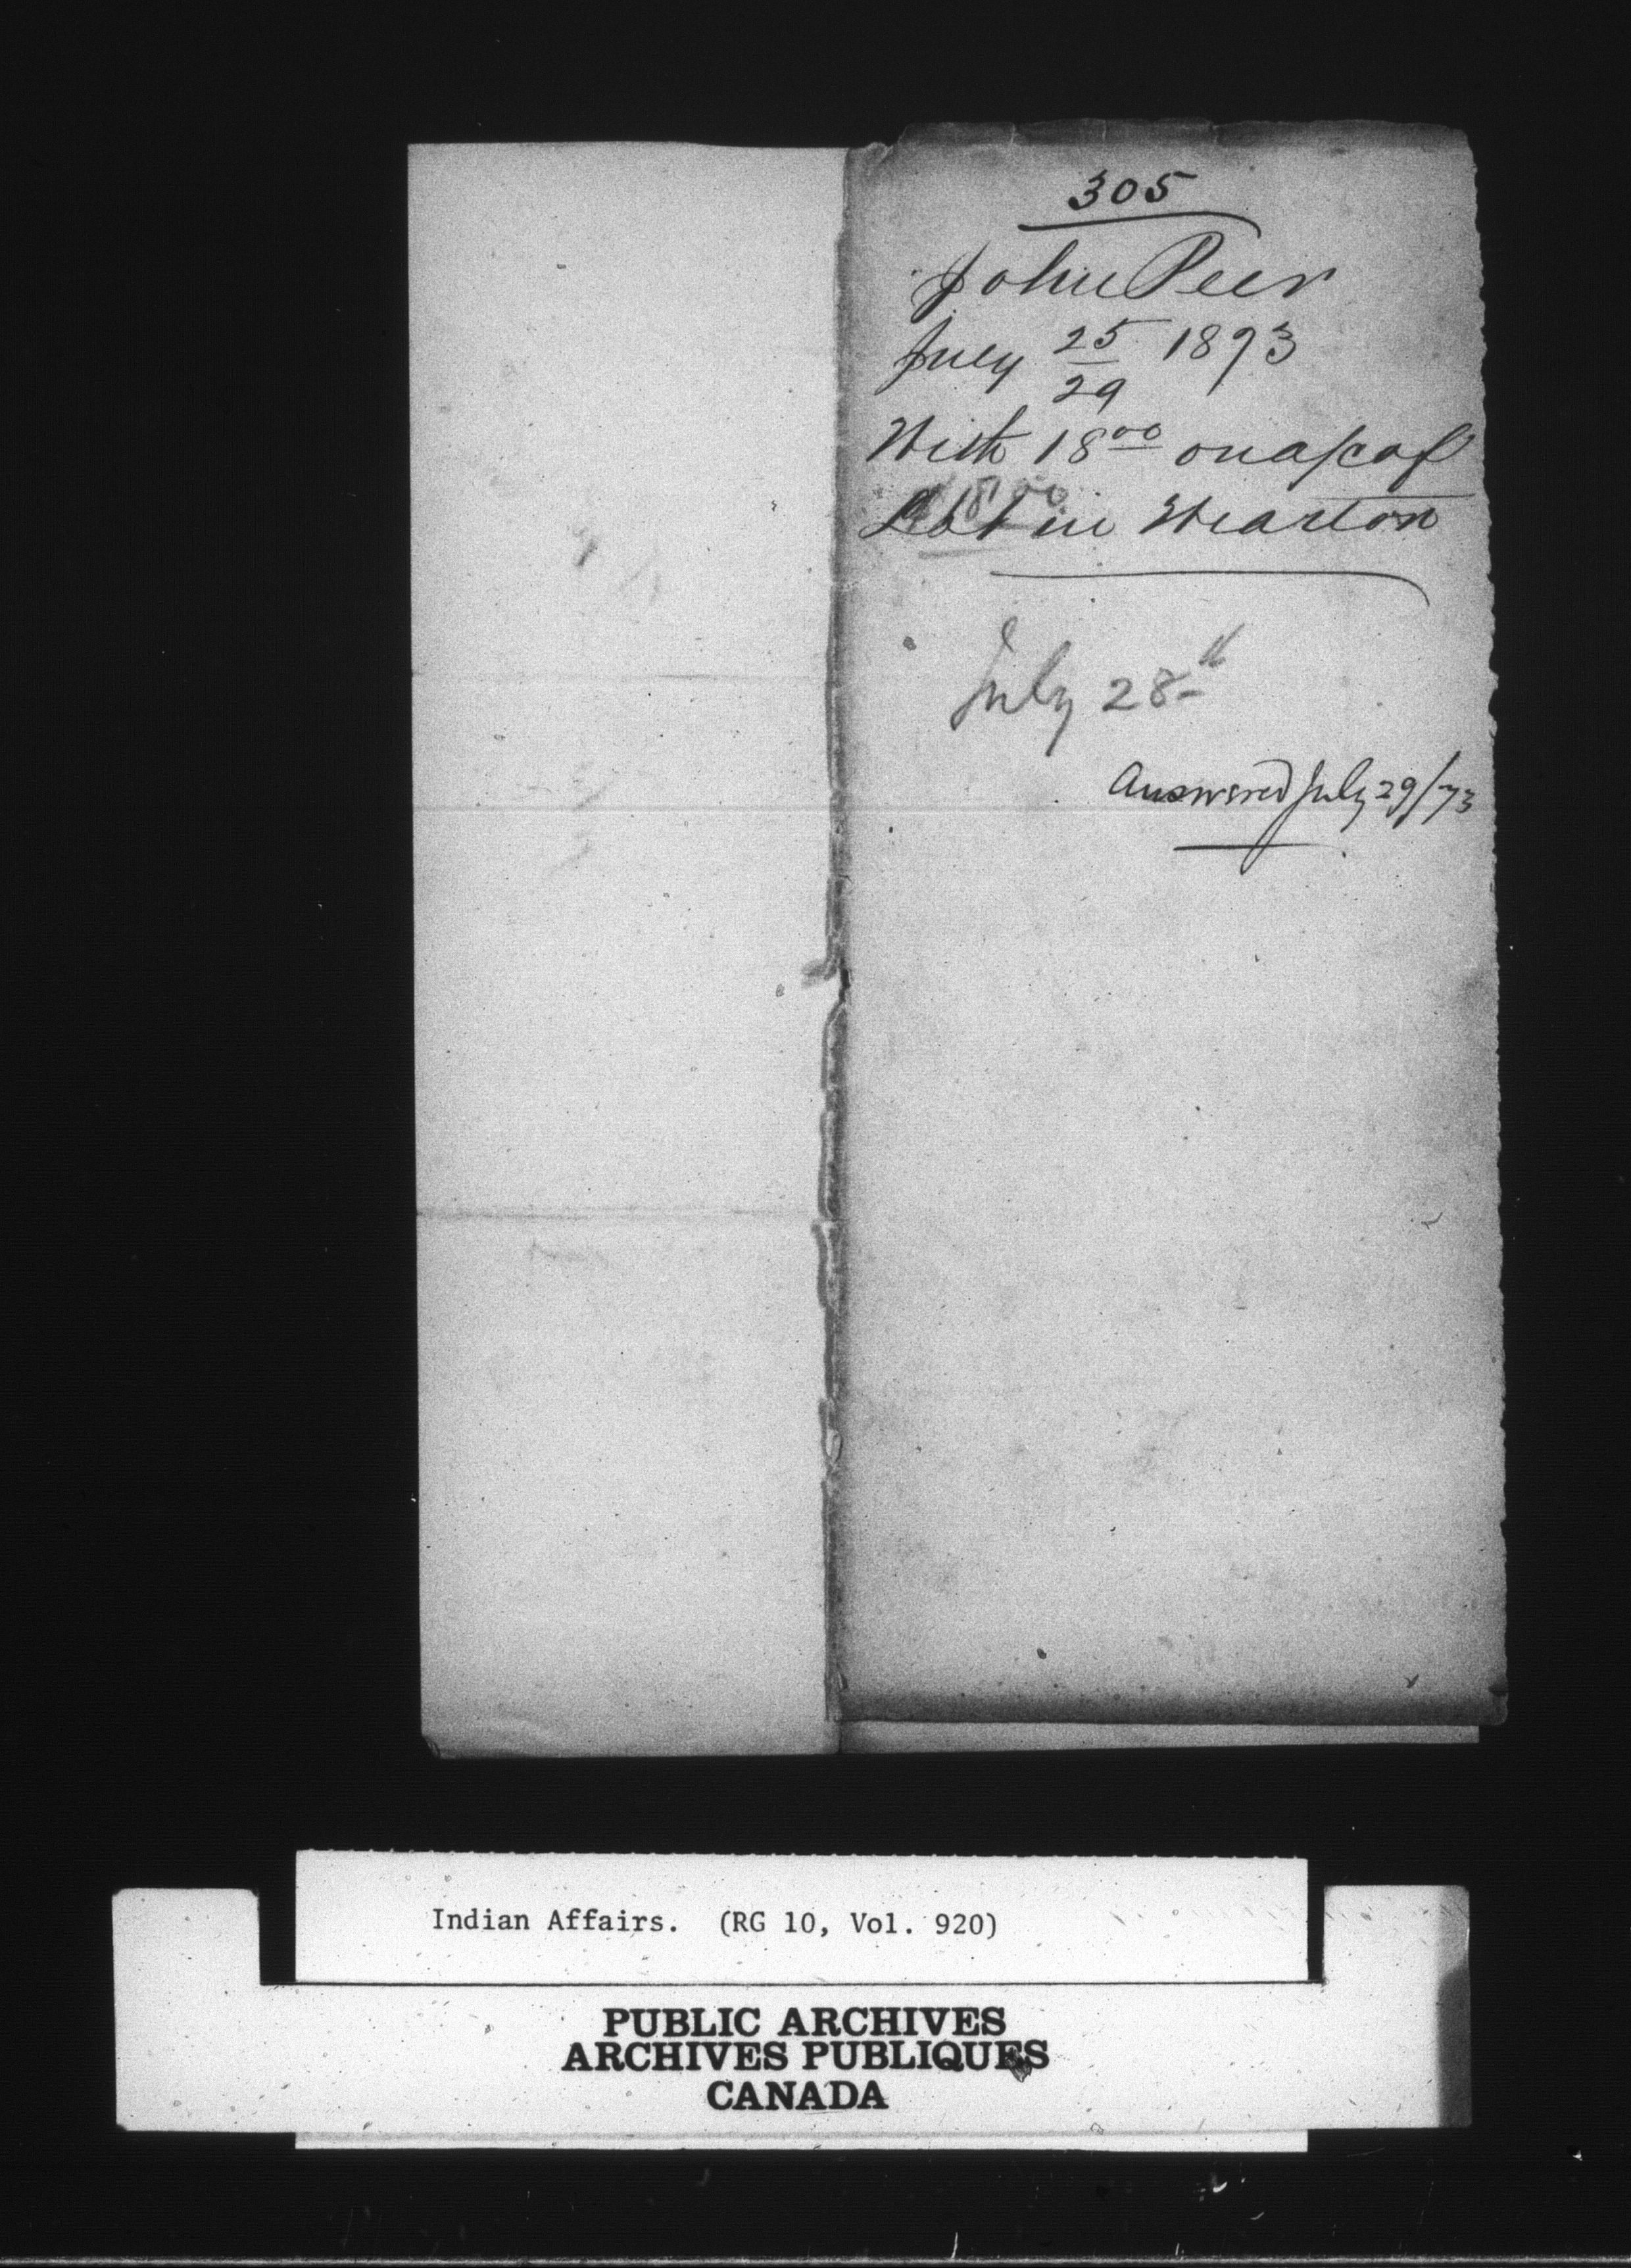 305
John Peer
July 25/29 1873
With 18.00 on a/c of
Lot in Wiarton
July 28th
Answered July 29/73
Indian Affairs. (RG 10, Vol. 920)
PUBLIC ARCHIVES
ARCHIVES PUBLIQUES
CANADA